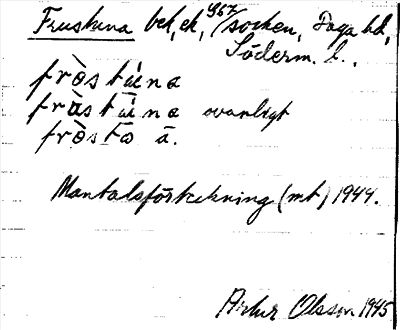 Frustuna bek, ek, 967/socken, Daga hd,
Söderm. l..
frøstúna
frùstúna ovanligt
frøsta å.
Mantalsförteckning (mt) 1944.
Artur Olsson 1945